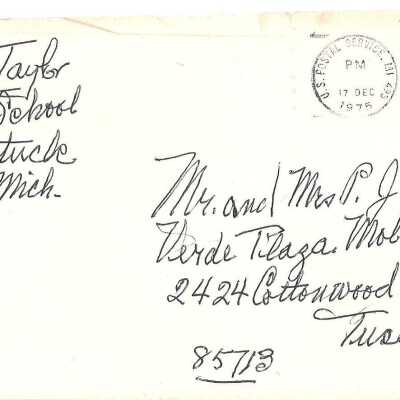 Taylor
School
tuck
Mich.
U.S. POSTAL SERVICE, MI 495
PM
17 DEC
1975
Mr. and Mrs P. J
Verde Plaza. Mob
2424 Cottonwood
Tus
85713